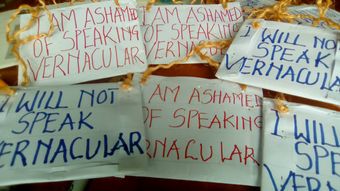 I AM ASHAMED
OF SPEAKING
VERNACULAR
I AM ASHAMED
OF SPEAKING
VERNACULAR
I WILL NOT
SPEAK
VERNACULAR
I WILL NOT
SPEAK
VERNACULAR
I AM ASHAMED
OF SPEAKING
VERNACULAR
I WILL NOT
SPEAK
VERNACULAR